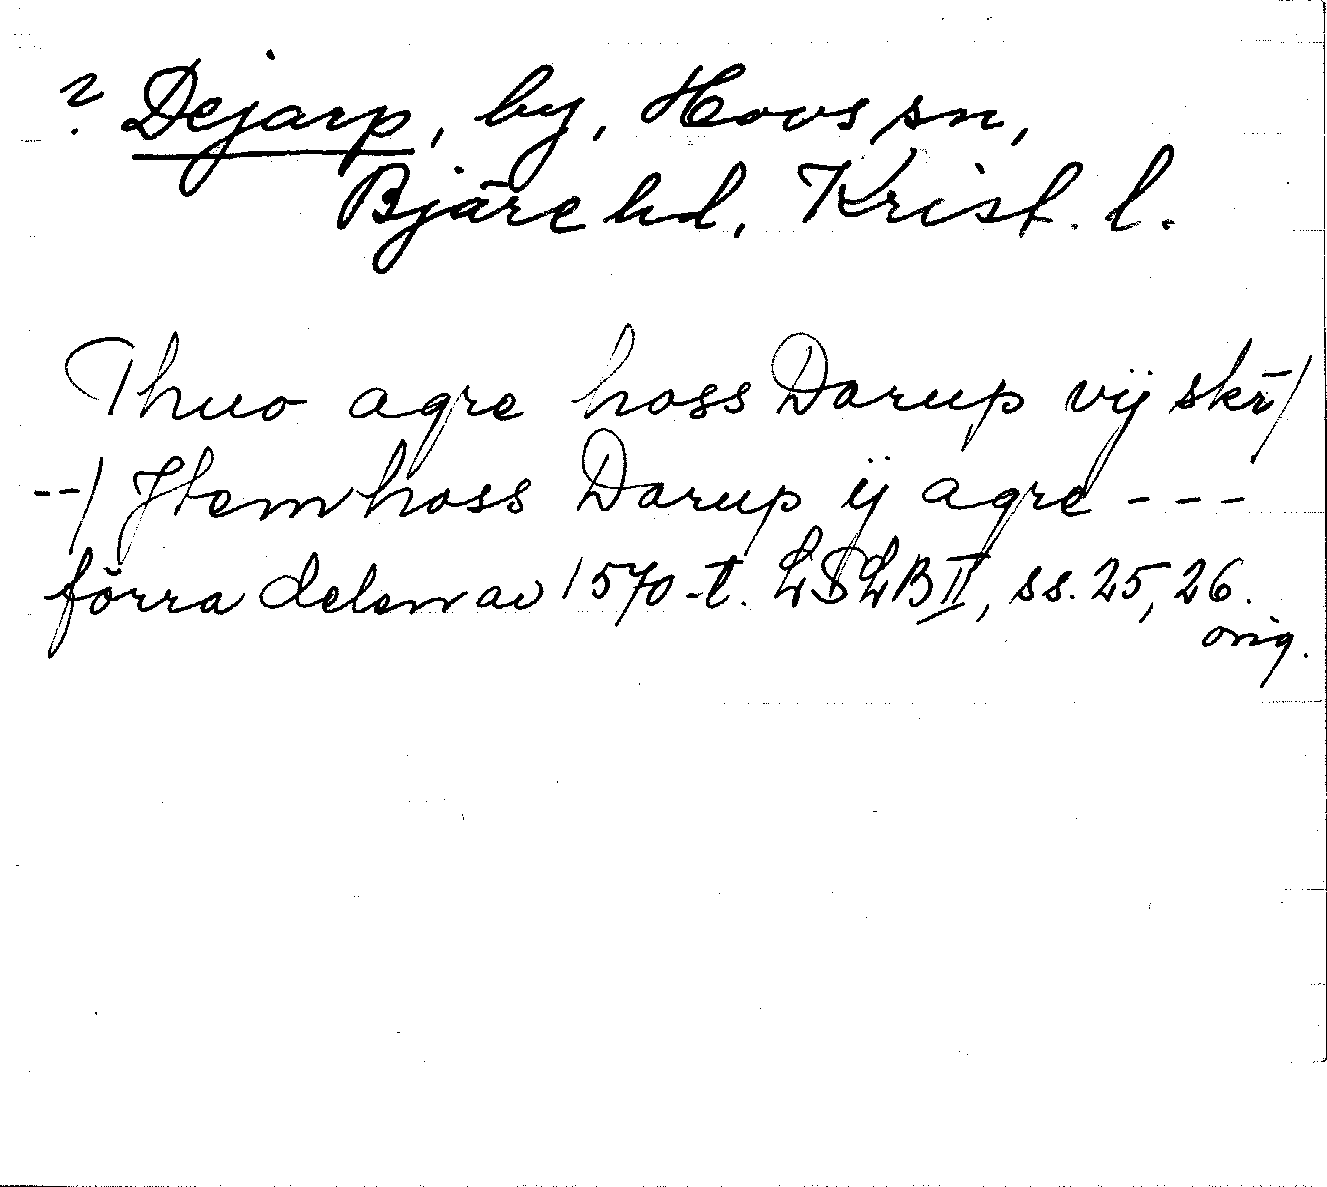 ? Dejarp, by, Hovs sn,
Bjäre hd, Krist. l.
Thuo agre hoss Darup vij skr̄/
--/ Jtem hoss Darup ij agre ---
förra delen av 1570-t. LSLB II, ss. 25, 26.
orig.